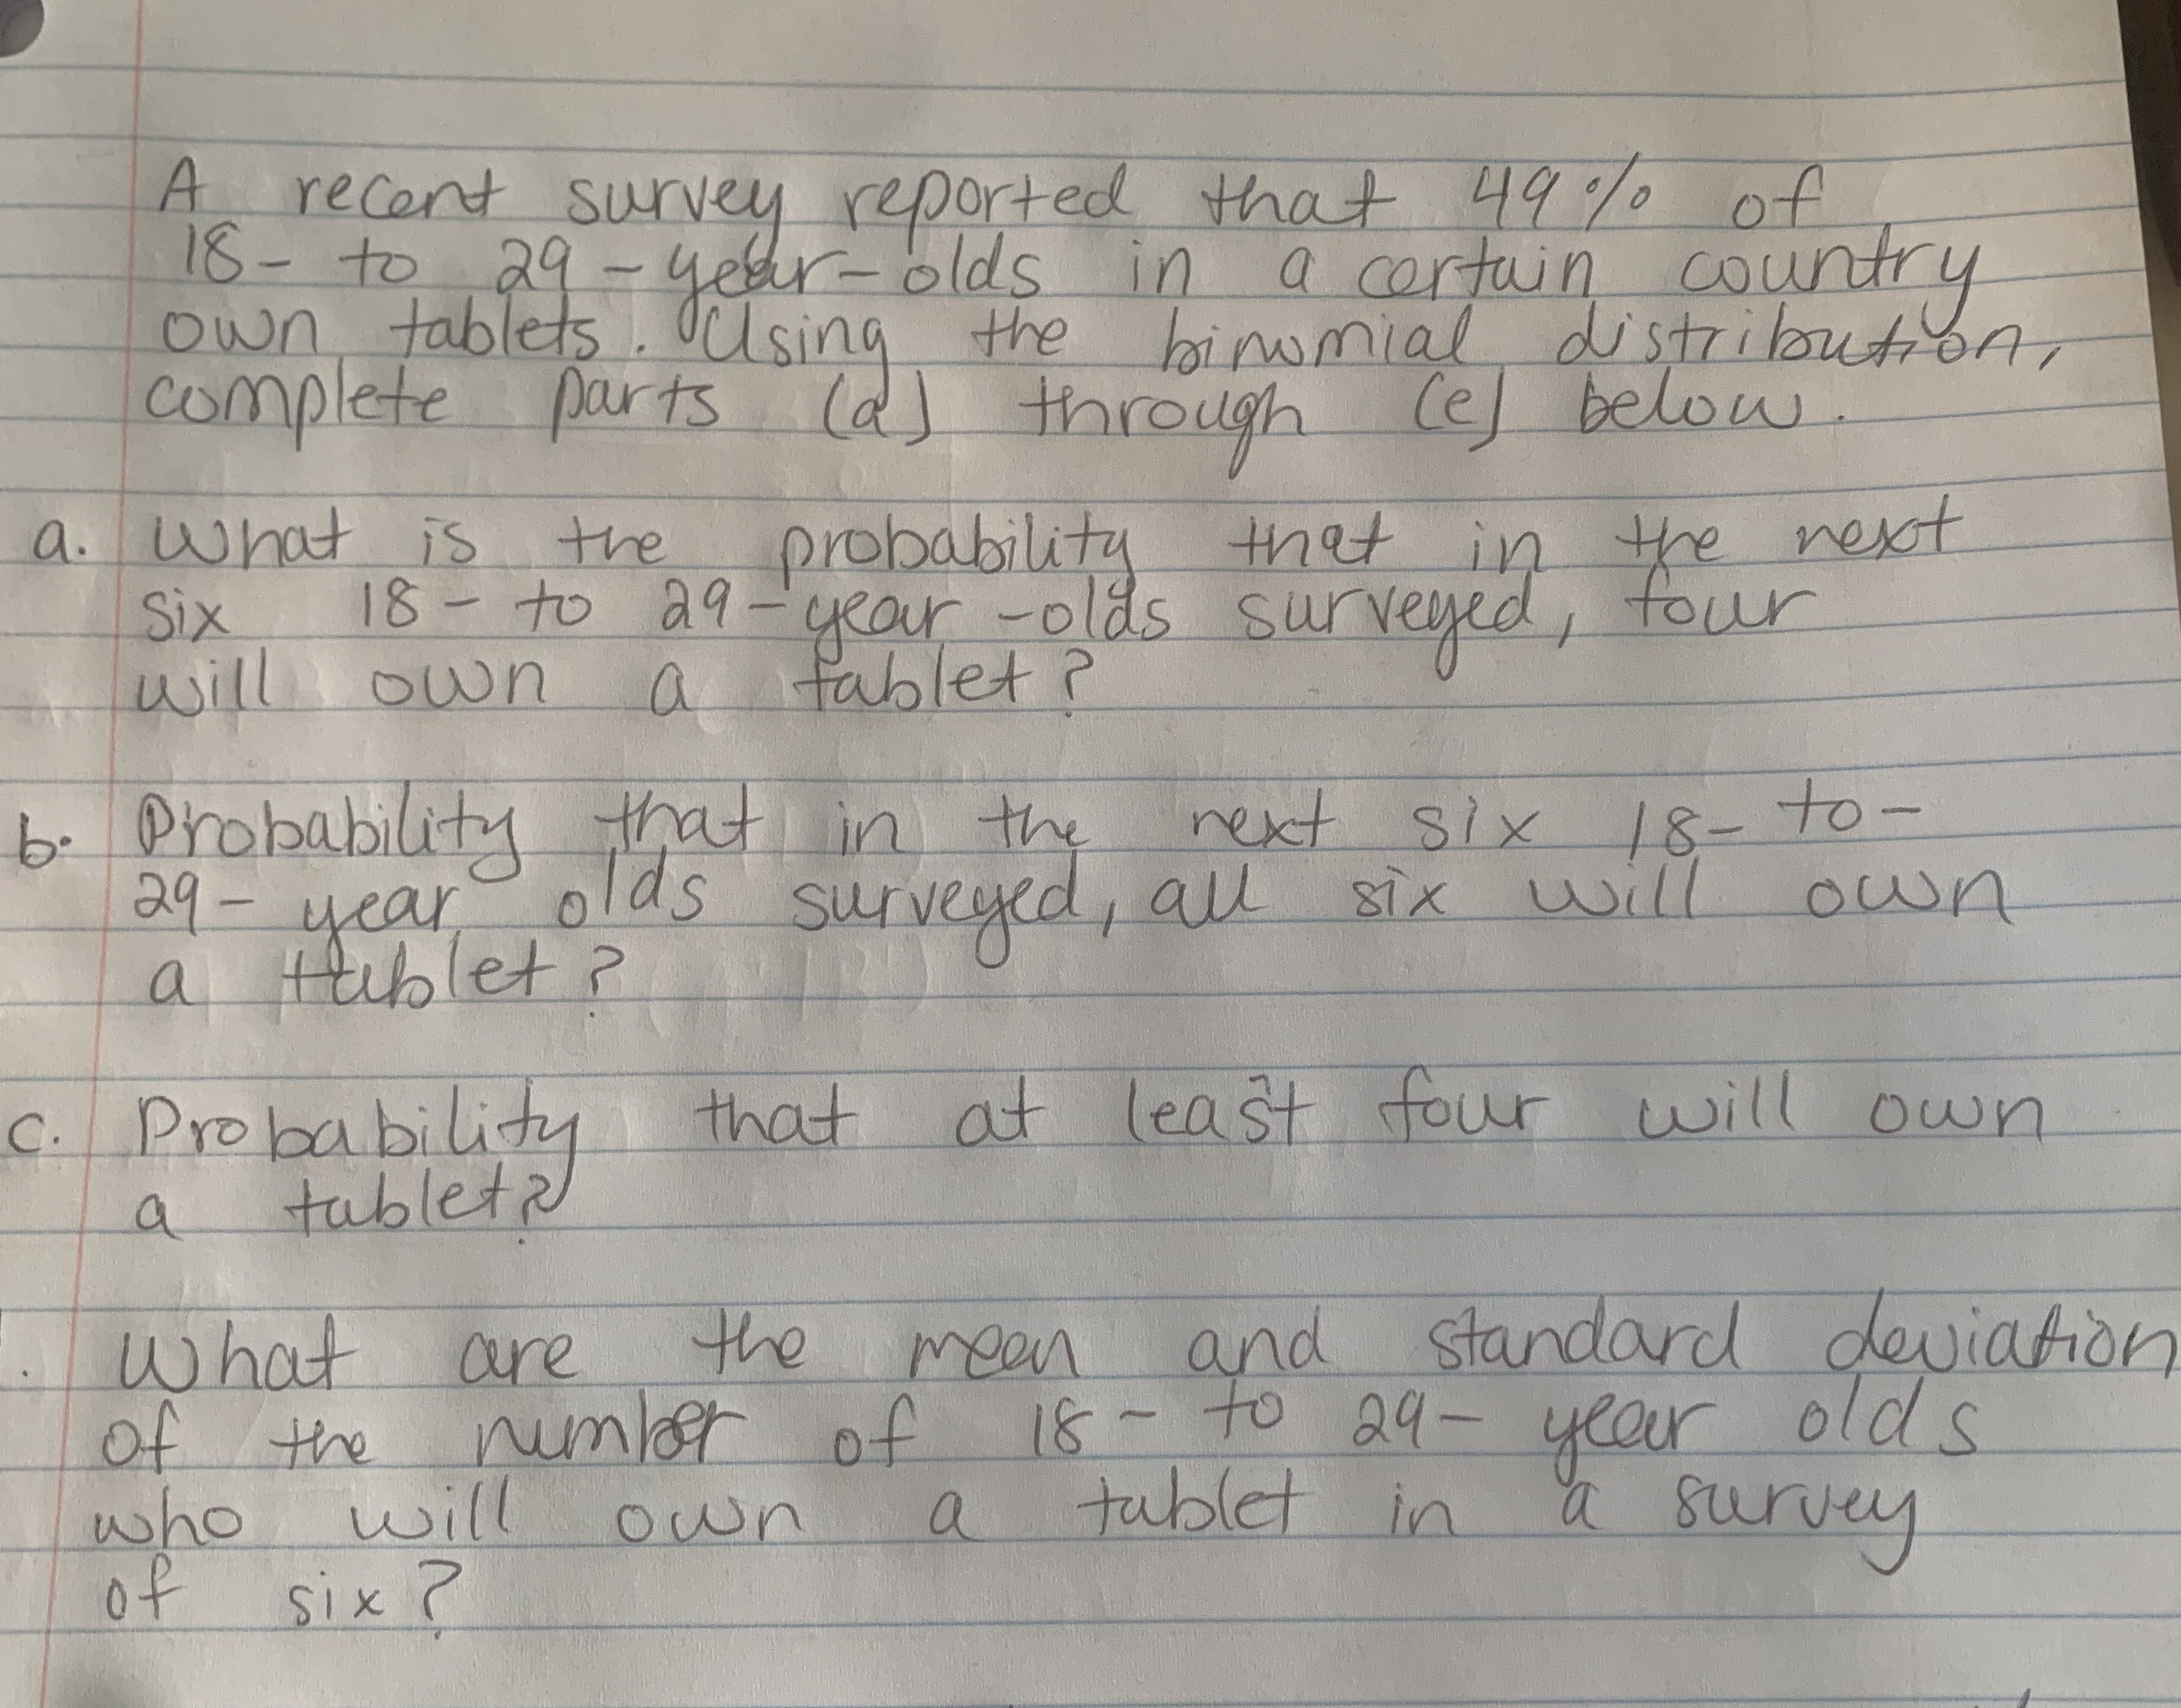 A recent survey reported that 49% of
18- to 29-year-olds in a certain country
own tablets. Using the binomial distribution,
complete parts (a) through (e) below.
a. What is the probability that in the next
six 18- to 29-year-olds surveyed, four
will own a tablet?
b. Probability that in the next six 18- to-
29- year olds surveyed, all six will own
a tablet?
c. Probability that at least four will own
a tablet?
. What are the mean and standard deviation
of the number of 18- to 29- year olds
who will own a tablet in a survey
of six?